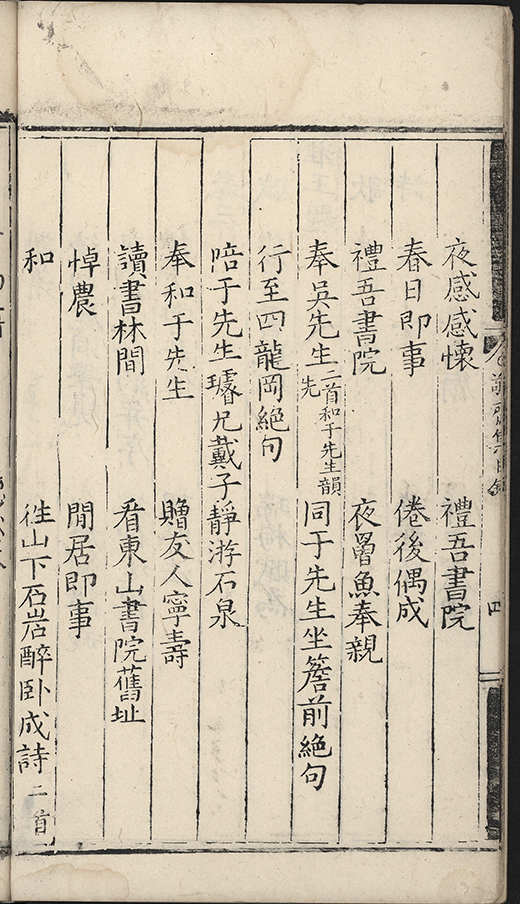 夜感感懷　禮吾書院
春日即事　倦後偶成
禮吾書院　夜罾魚奉親
奉吳先生二首和于先生韻先　同于先生坐簷前絕句
行至四龍岡絕句
陪于先生璿兄戴子靜游石泉
奉和于先生　贈友人寧壽
讀書林間　看東山書院舊址
悼農　閒居即事
和　徃山下石岩醉卧成詩二首
四